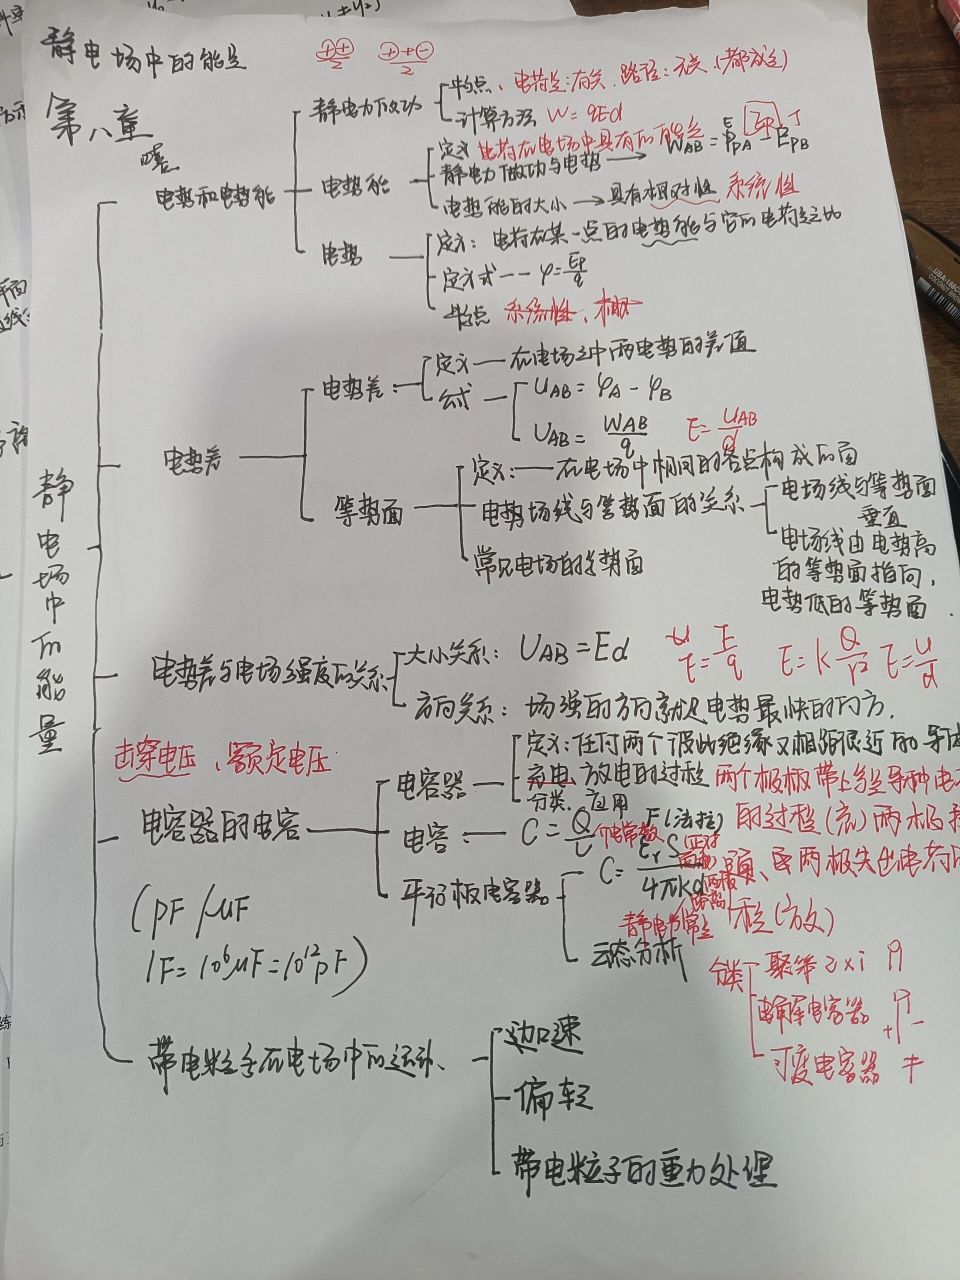 静电场中的能量
第八章
静电场中的能量
电势和电势能
静电力做功
特点、电荷量:有关.路径:无关.(都成立)
计算方法 W = qEd
电势能
定义 电荷在电场中具有的能量
静电力做功与电势 → WAB = EPA - EPB
EP J
电势能的大小 → 具有相对性 系统性
电势
定义: 电荷在某一点的电势能与它的电荷量之比
定义式 -- φ = Ep/q
特点 系统性、相对
电势差
电势差:
定义 — 在电场之中两电势的差值
公式 UAB = φA - φB
UAB = WAB/q E = UAB/d
等势面
定义: — 在电场中相同的各点构成的面
电势场线与等势面的关系
电场线与等势面
垂直
电场线由电势高
的等势面指向,
电势低的等势面.
常见电场的等势面
电势差与电场强度的关系
大小关系: UAB = Ed
E = F/q E = k Q/r² E = U/d
方向关系: 场强的方向就是电势最快的方.
击穿电压、额定电压
电容器的电容
(pF/μF
1F = 10⁶μF = 10¹²pF)
电容器
定义: 任何两个彼此绝缘又相距很近的导
充电、放电的过程 两个极板带上等量异种电
分类、应用
电容: — C = Q/U F(法拉) 的过程(充)两极
平行板电容器
C = εrS/4πkd
介电常数
正对
面积
两板
距离
静电力常量
、使两极失去电荷
程(放)
动态分析
分类
聚苯乙xi
电解电容器 + -
可变电容器
带电粒子在电场中的运动、
加速
偏转
带电粒子的重力处理